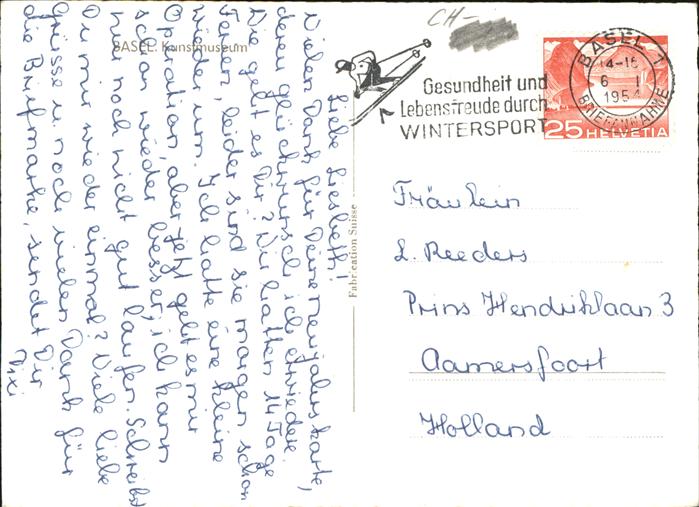 BASEL. Kunstmuseum
Liebe Liesbeth!
Vielen Dank für Deine Neujahrskarte,
deren glückwunsch ich erwiedere.
Wie geht es Dir? Wir hatten 14 Tage
Ferien, leider sind sie morgen schon
wieder um. Ich hatte eine kleine
Operation, aber jetzt geht es mir
schon wieder besser, ich kann
nur noch nicht gut laufen. Schreibst
Du mir wieder einmal? Viele liebe
Grüsse u. noch vielen Dank für
die Briefmarke, sendet Dir
Fabrication Suisse
CH-
Gesundheit und
Lebensfreude durch
WINTERSPORT
BASEL 1
14-15
6. I
1954
BRIEFANNAHME
25 HELVETIA
Fräulein
L. Reeders
Prins Hendriklaan 3
Aamersfoort
Holland